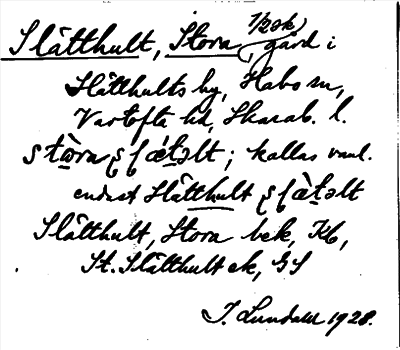 Slätthult, Stora, (1/2 ek) gård i
Slätthults by, Habo sn,
Vartofta hd, Skarab. l.
kallas vanl.
endast Slätthult
Slätthult, Stora bek, Kb,
St. Slätthult ek, GS
J. Lundahl 1928.